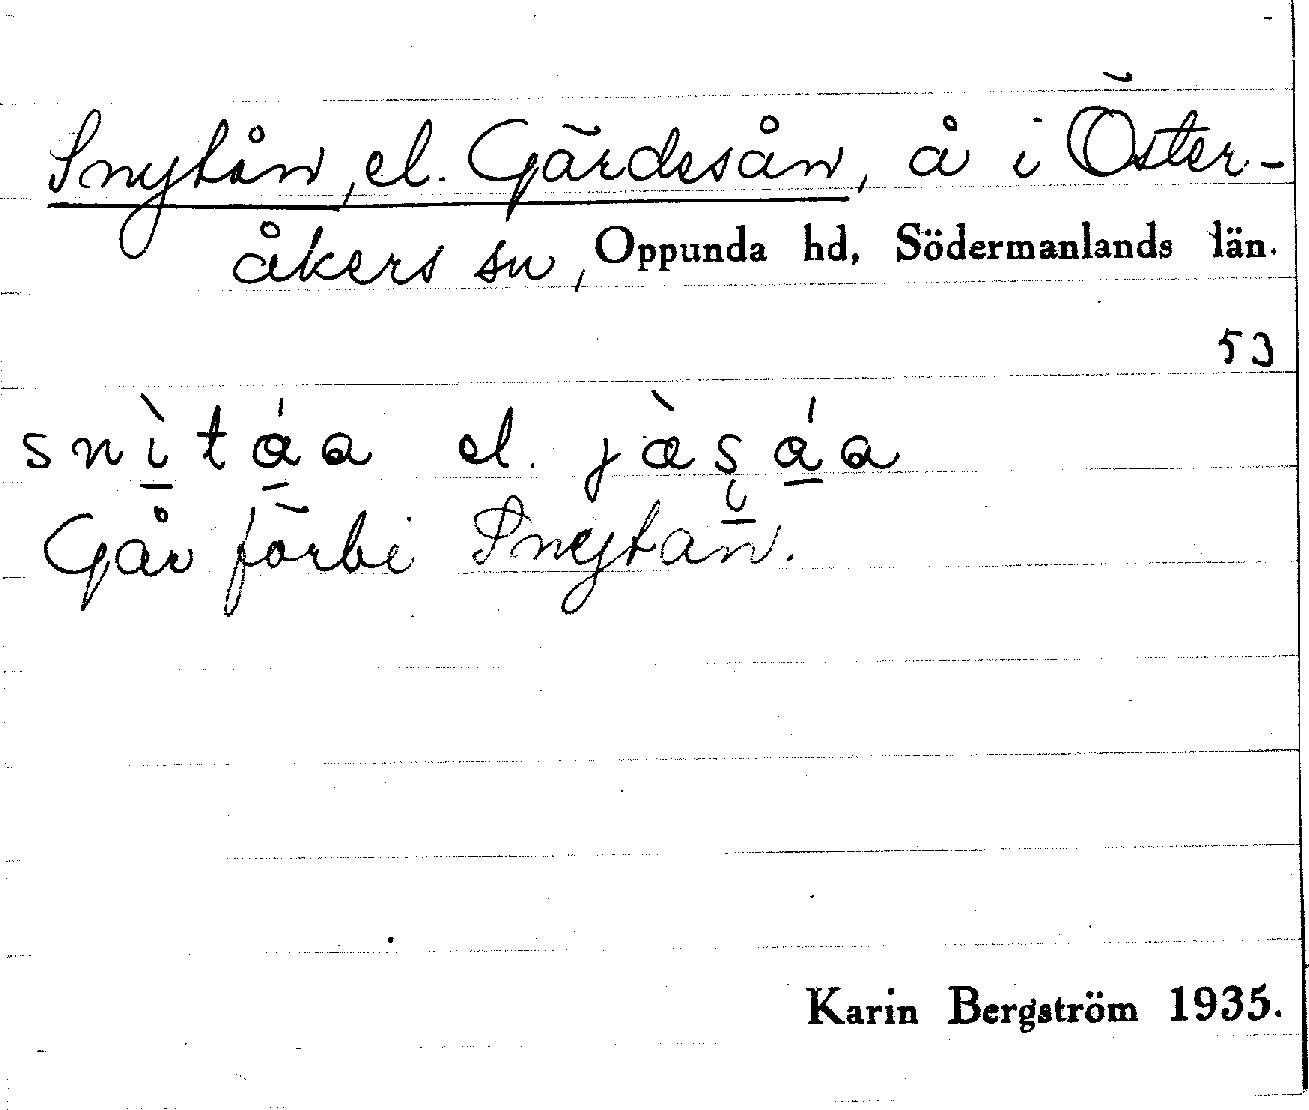 Snytån, el. Gärdesån, å i Öster-
åkers sn, Oppunda hd, Södermanlands län.
53
snìtáa el. jæ̀ṣáa
Går förbi Snytan.
Karin Bergström 1935.